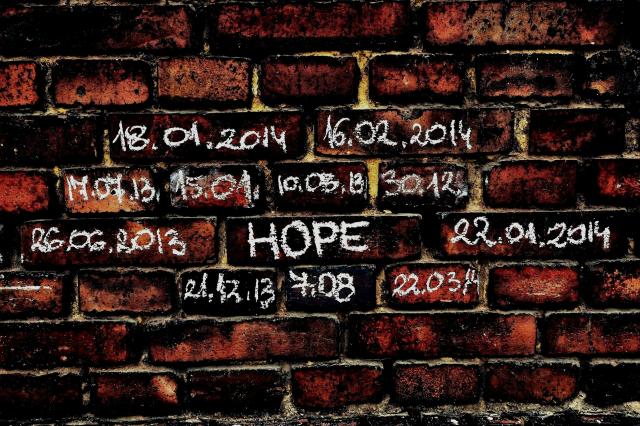 18.01.2014 16.02.2014
17.07.13, 15.01, 10.03.13, 30.12,
26.06.2013 HOPE 22.01.2014
21.12.13 7.08 22.03.14